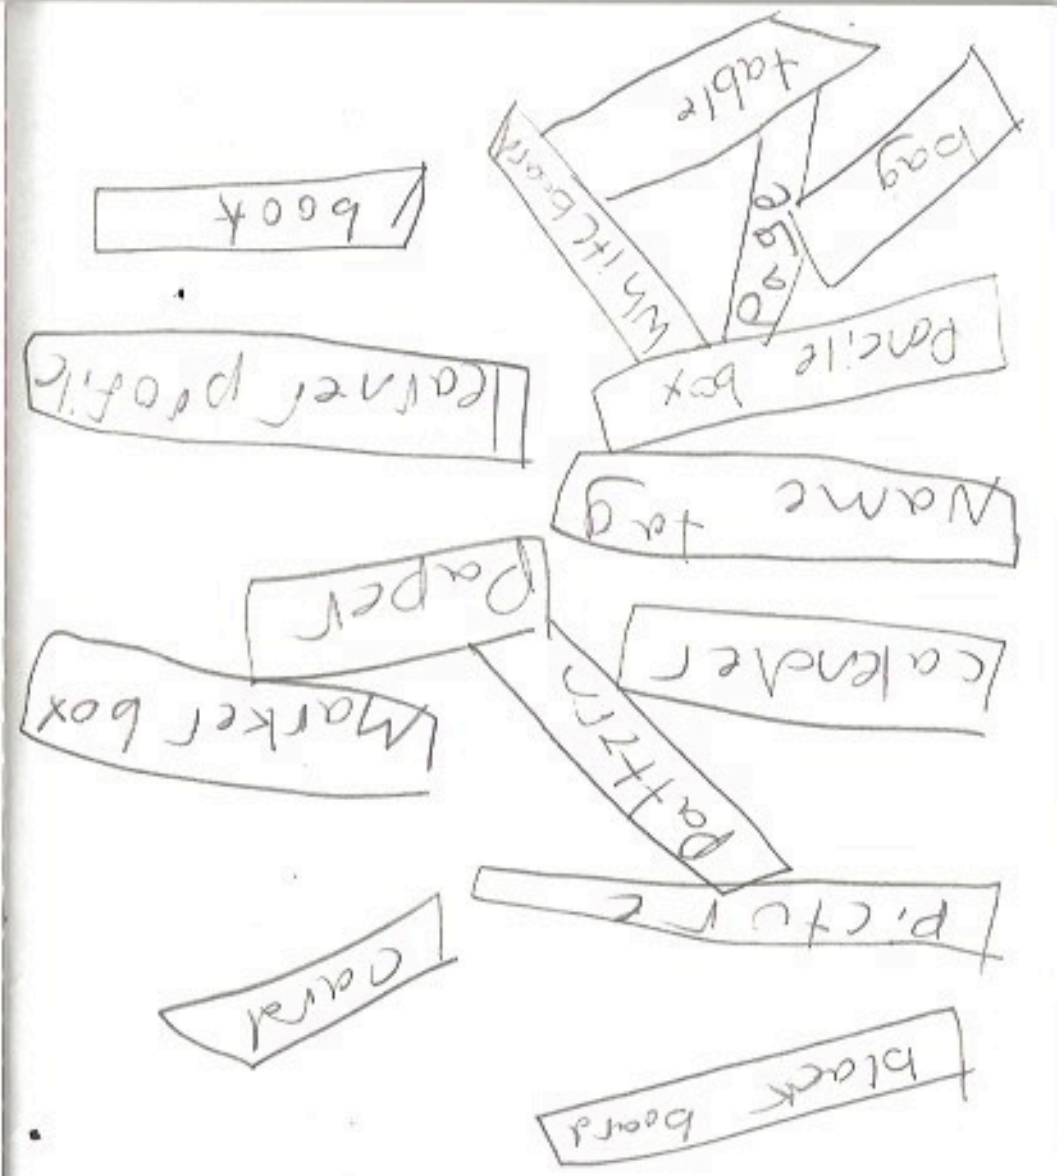 black board
card
picture
Pattern
Marker box
calender
Paper
Name tag
learner profile
Pencile box
book
Whiteboard
bag
table